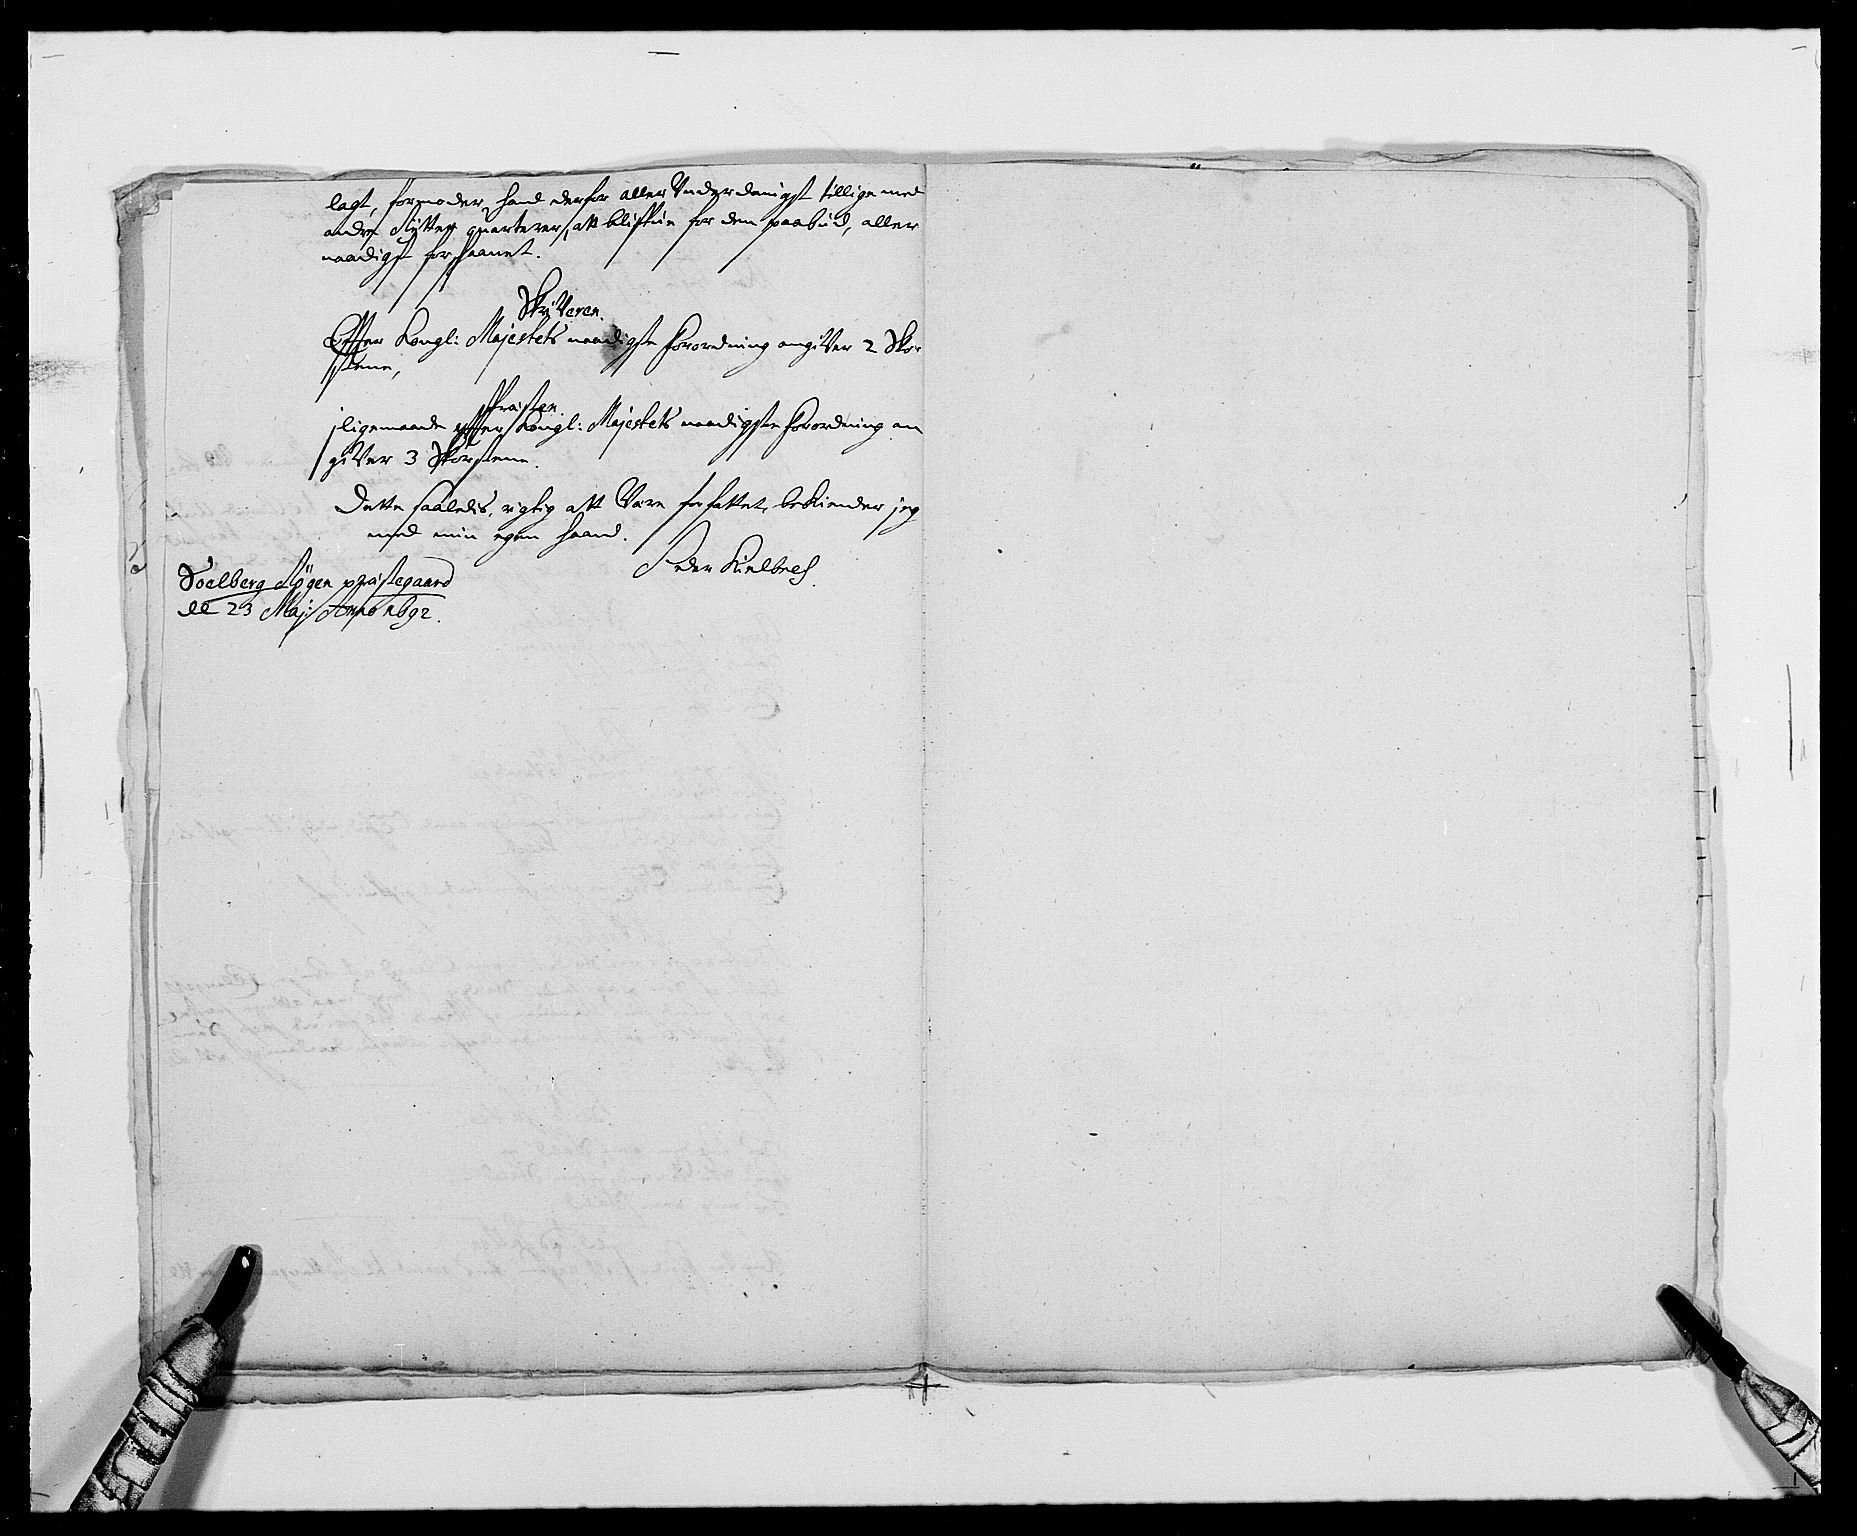 lagt, formoder hand derfor aller Underdanigst tillige med
andre Rytter quarterer, att blifue for dem paabud, aller
naadigst forskaanet.
Skriveren.
Effter Kongl: Majestets naadigste Forordning angiver 2 Skor-
stene,
Præsten.
jligemaade effter Kongl: Majestets naadigste Forordning an
giver 3 Skorstene.
Dette saaledis, rigtig att Være forfattet, beKiender jeg
med min egen haand.
Peder
Soelberg præstegaard
23 Maj: Anno 1692.